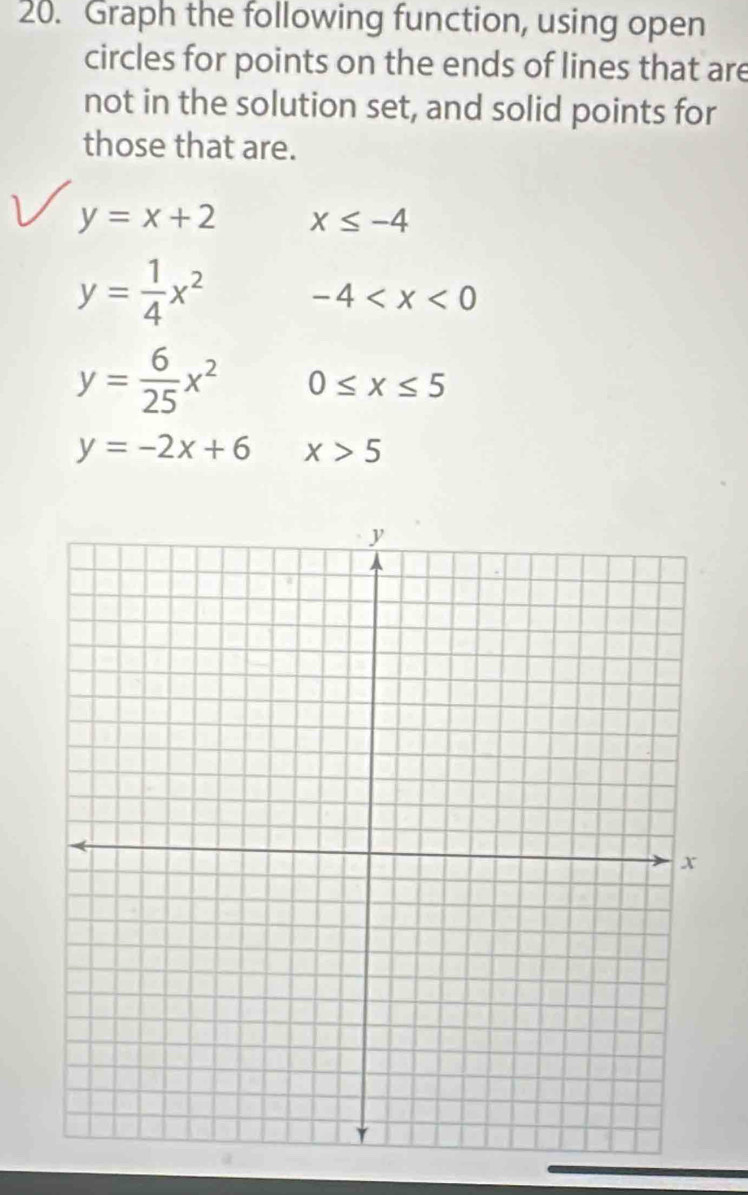 20. Graph the following function, using open
circles for points on the ends of lines that are
not in the solution set, and solid points for
those that are.
y = x + 2 x ≤ −4
y = 1/4 x² −4 < x < 0
y = 6/25 x² 0 ≤ x ≤ 5
y = −2x + 6 x > 5
y
x